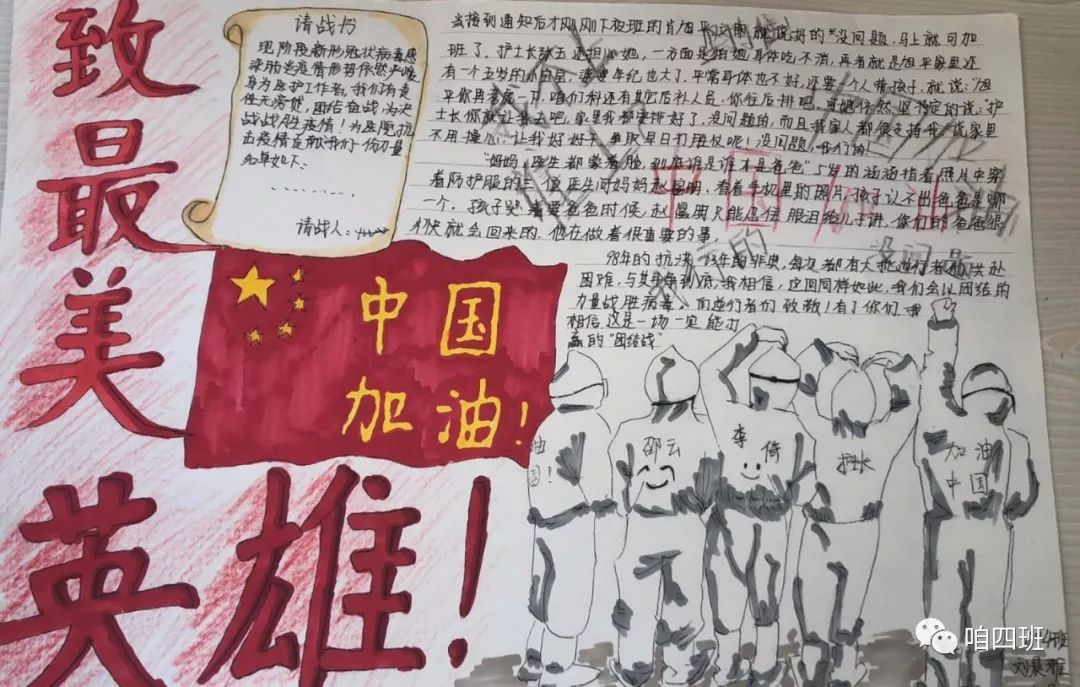 致最美
英雄！
请战书
现阶段新形冠状病毒感
染肺炎疫情形势依然严峻
身为医护工作者，我们有责
任无旁贷，团结奋战为决
战战胜疫情！为医院抗
击疫情贡献我们一份力量
名单如下、
…………
请战人：
中国
加油！
当接到通知后才刚刚下夜班的肖旭平 没问题，马上就可加
班了，护士长 还担心她，一方面是怕她身体吃不消，再者就是旭平家里还
有一个五岁的小 婆婆年纪也大了，平常身体也不好，还要一个人带孩子，就说："旭
平你再考虑一下，咱们科还有其它后补人员，你往后排吧，可她依然坚持定的说，"护
士长你就让我去吧，家里我都安排好了，没问题的，而且我家人都很支持我，说家里
不用操心，让我好好干，争取早日打胜仗呢！没问题
"妈妈，医生都蒙着脸，到底谁是谁才是爸爸"5岁的涵涵指着照片中穿
着防护服的三位医生问妈妈赵 看着手机里的照片，孩子认不出爸爸是哪
一个，孩子哭着要爸爸时候，赵 只能忍住眼泪给儿子讲，你们的爸爸很
快就会回来的，他在做着很重要的事。
98年的抗洪 年的非典，每次都有大批逆行者 共赴
困难，与其 争到底，我相信，这回同样如此，我们会以团结的
力量战胜病毒，向逆行者们致敬！有了你们，我
相信这是一场一定能打
赢的"团结战"
中国加油
没问题
油
国！
邵云
李倚
护士长
加油
中国
咱四班
班
刘晨雅